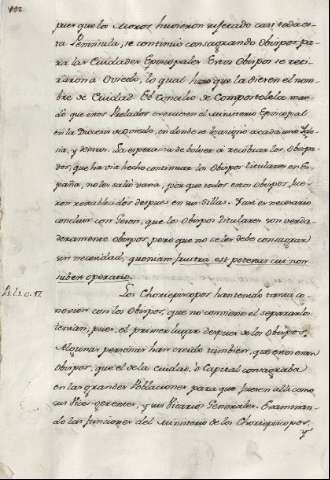 102.
pues que los Moros huvieron usurpado casi toda es-
ta Peninsula, se continuo consagrando Obispos pa-
ra las Ciudades Episcopales. Estos Obispos se reti-
raron a Oviedo, lo qual hizo que la dieron el nom-
bre de Ciudad. El Concilio de Compostela man-
do que estos Prelados exerciesen el ministerio Episcopal
en la Diocesi de Oviedo, en donde se asigno a cada uno Igle-
sia, y demas. La esperanza de bolver a recobrar los Obispa-
dos, que havia hecho continuar los Obispos titulares en Es-
paña, no les salio vana, porque todos estos Obispos, fue-
ron restablecidos despues en sus Sillas. Pero es necesario
concluir con Gerson, que los Obispos Titulares son verda-
deramente Obispos, pero que no se les debe consagrar
sin necesidad, quoniam frustra est potentia cui non
subest operatio.
Los Chorepiscopos han tenido tanta co-
nexion con los Obispos, que no conviene el separarlos
tenian, pues, el primer lugar despues de los Obispos.
Algunas personas han creido tambien, que estos eran
Obispos, que el de la ciudad, o Capital consagraba
en las grandes Poblaciones para que fuesen alli como
sus Vices-gerentes, y sus Vicarios Generales. Examinan-
do las funciones del ministerio de los Chorepiscopos,